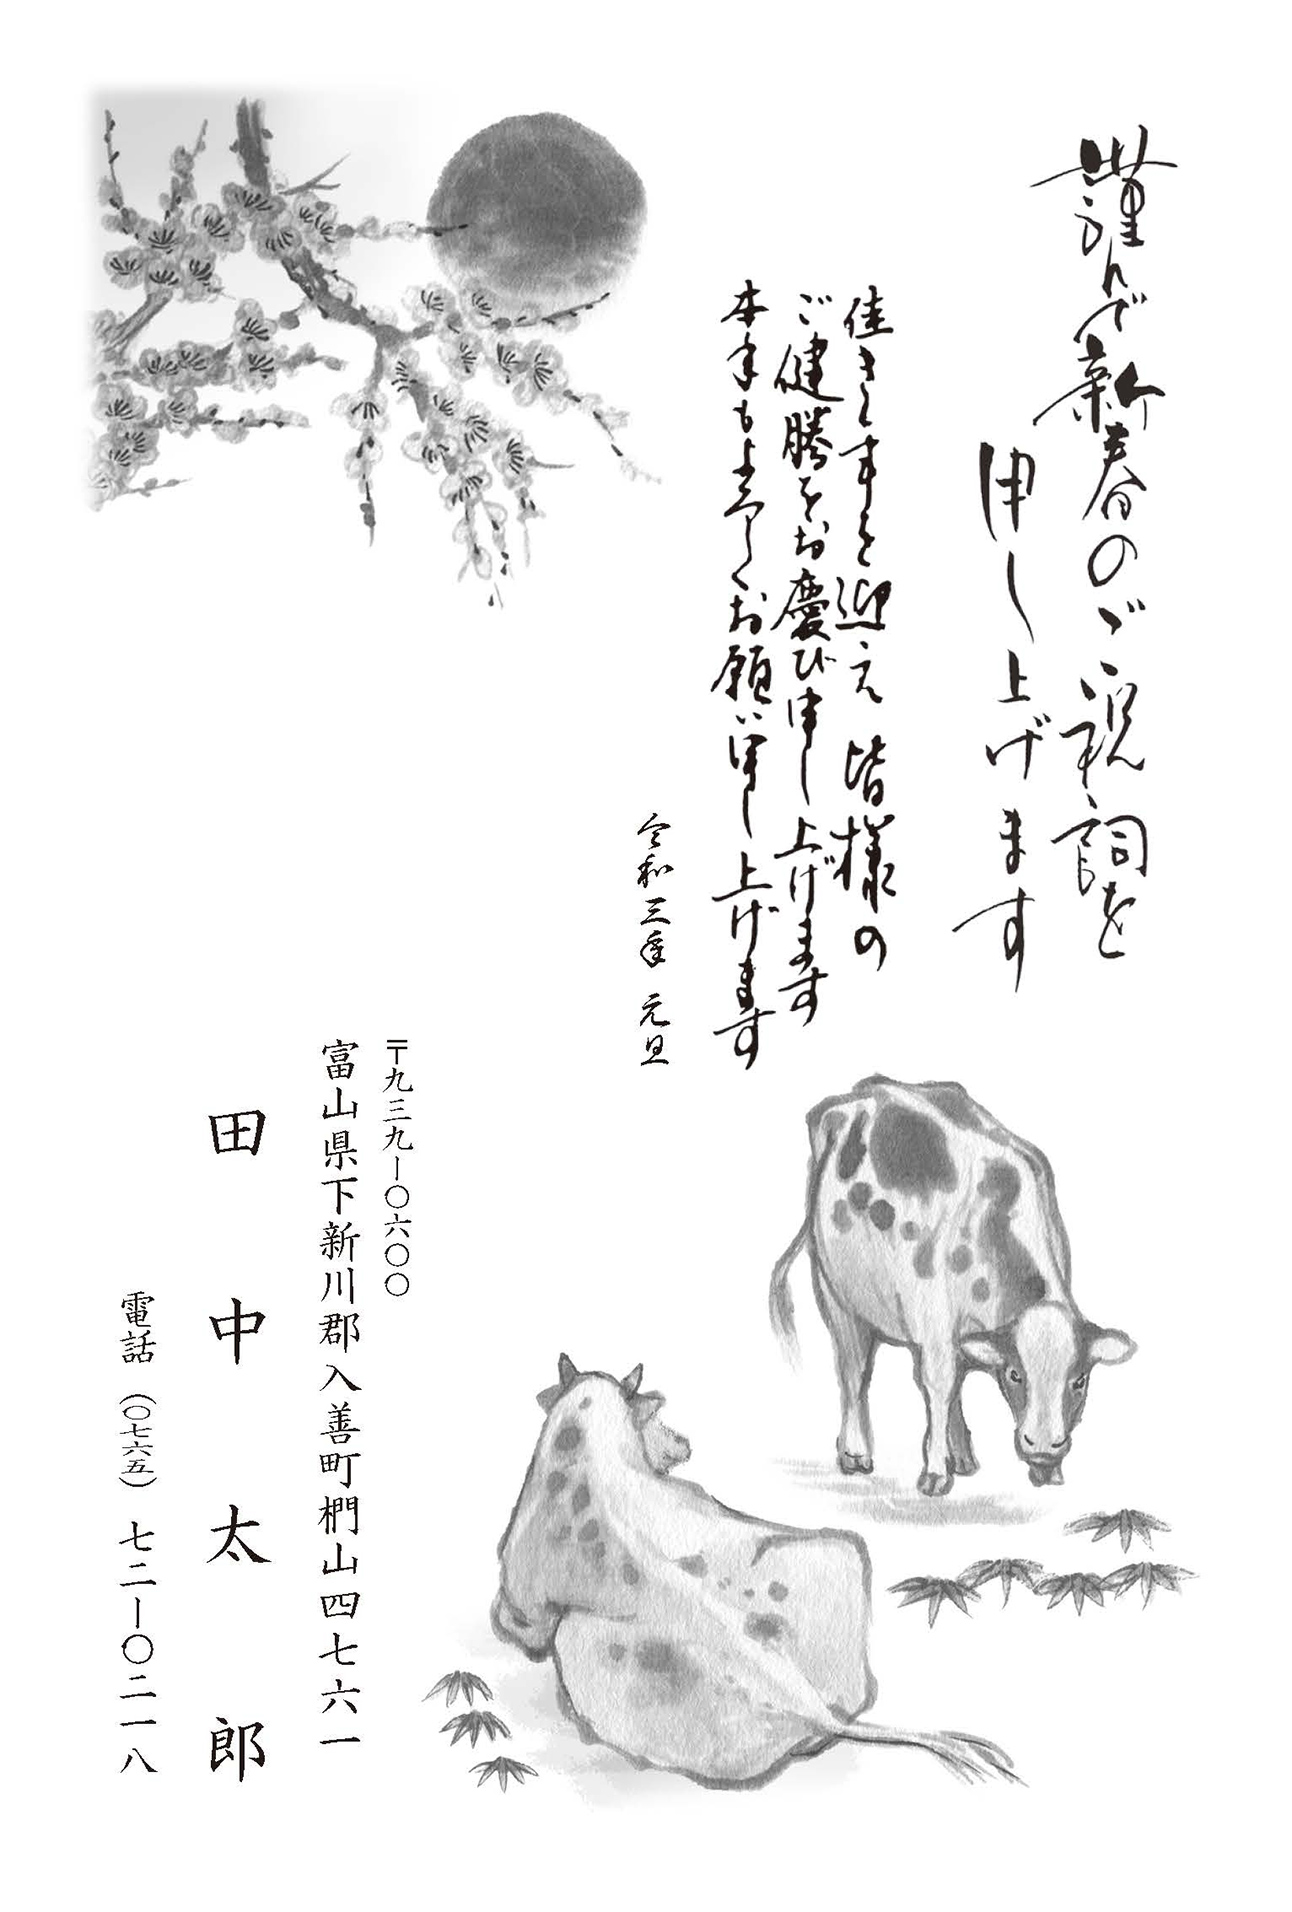 謹んで新春のご祝詞を
申し上げます
佳き年を迎え 皆様の
ご健勝をお慶び申し上げます
本年も宜しくお願い申し上げます
令和三年 元旦
〒九三九ー〇六〇〇
富山県下新川郡入善町椚山四七六一
田中太郎
電話(〇七六五)七二ー〇二一八